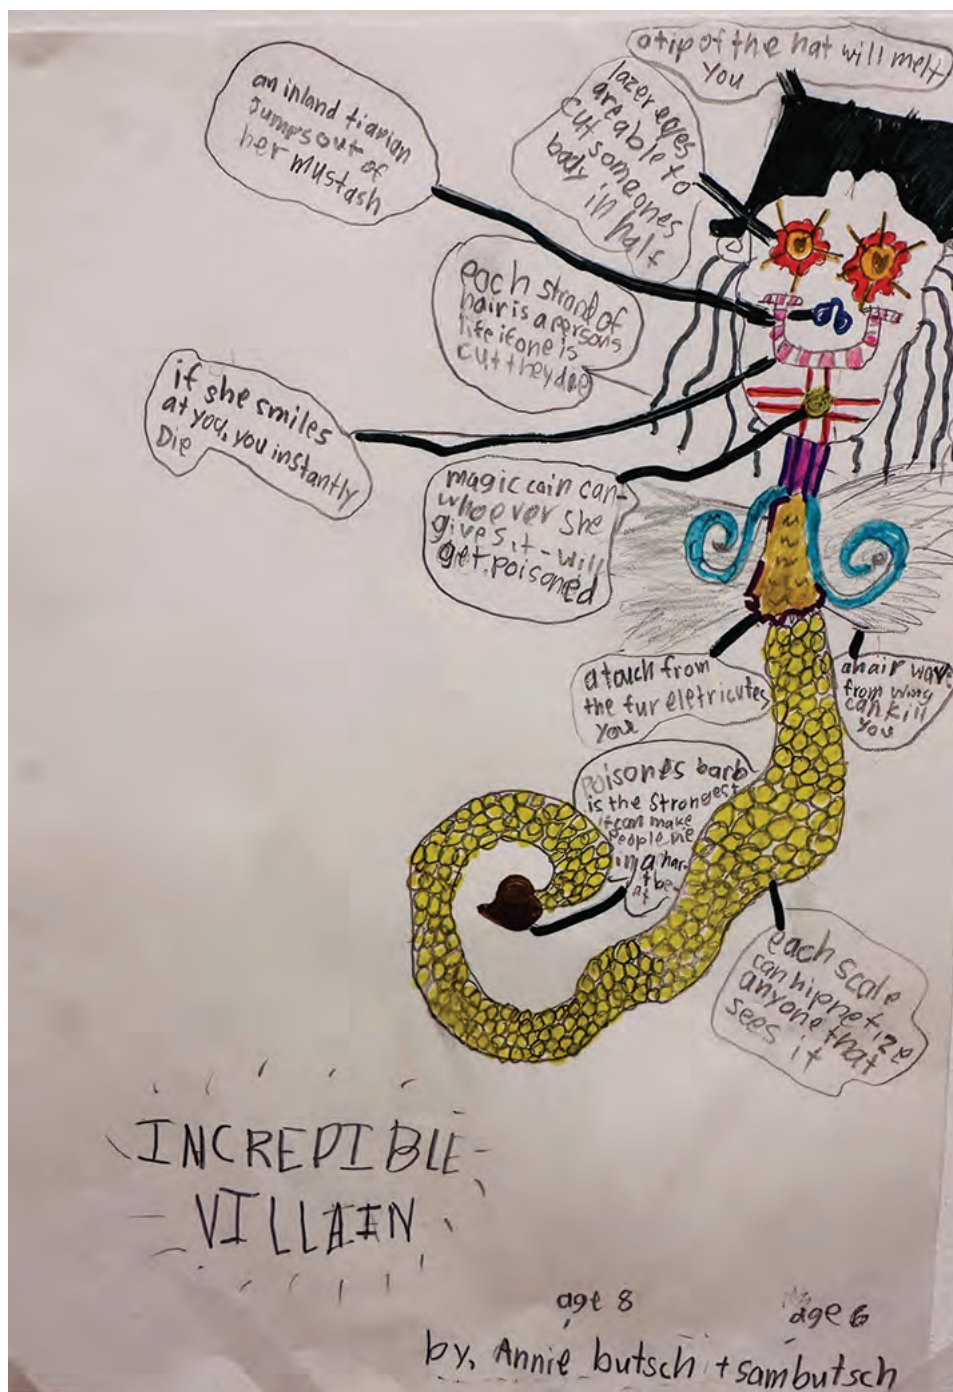 a tip of the hat will melt
you
an inland tiapian
Jumps out of
her mustash
lazer eyes
are able to
cut someones
body
in half
each strand of
hair is a persons
life if one is
cut they die
if she smiles
at you, you instantly
Die
magic coin can-
whoever she
gives it - will
get poisoned
a touch from
the fur eletricutes
you
a hair wav
from wing
can kill
you
Poisones barb
is the strongest
it can make
People Die
in a har
t be
at
each scale
can hipnetize
anyone that
sees it
INCREDIBLE
VILLAIN
age 8
age 6
by, Annie butsch + sam butsch